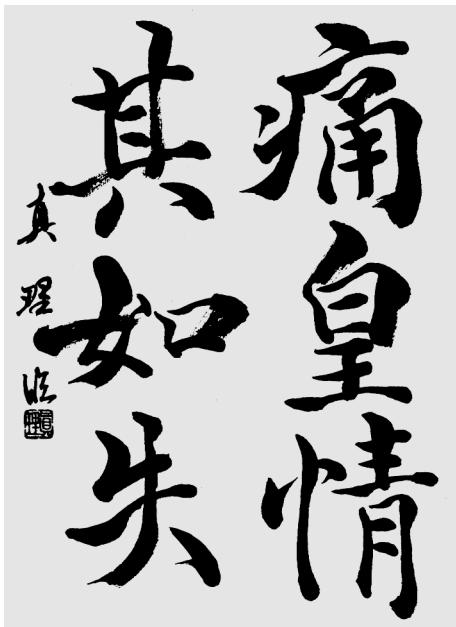 痛皇情
其如失
真理臨